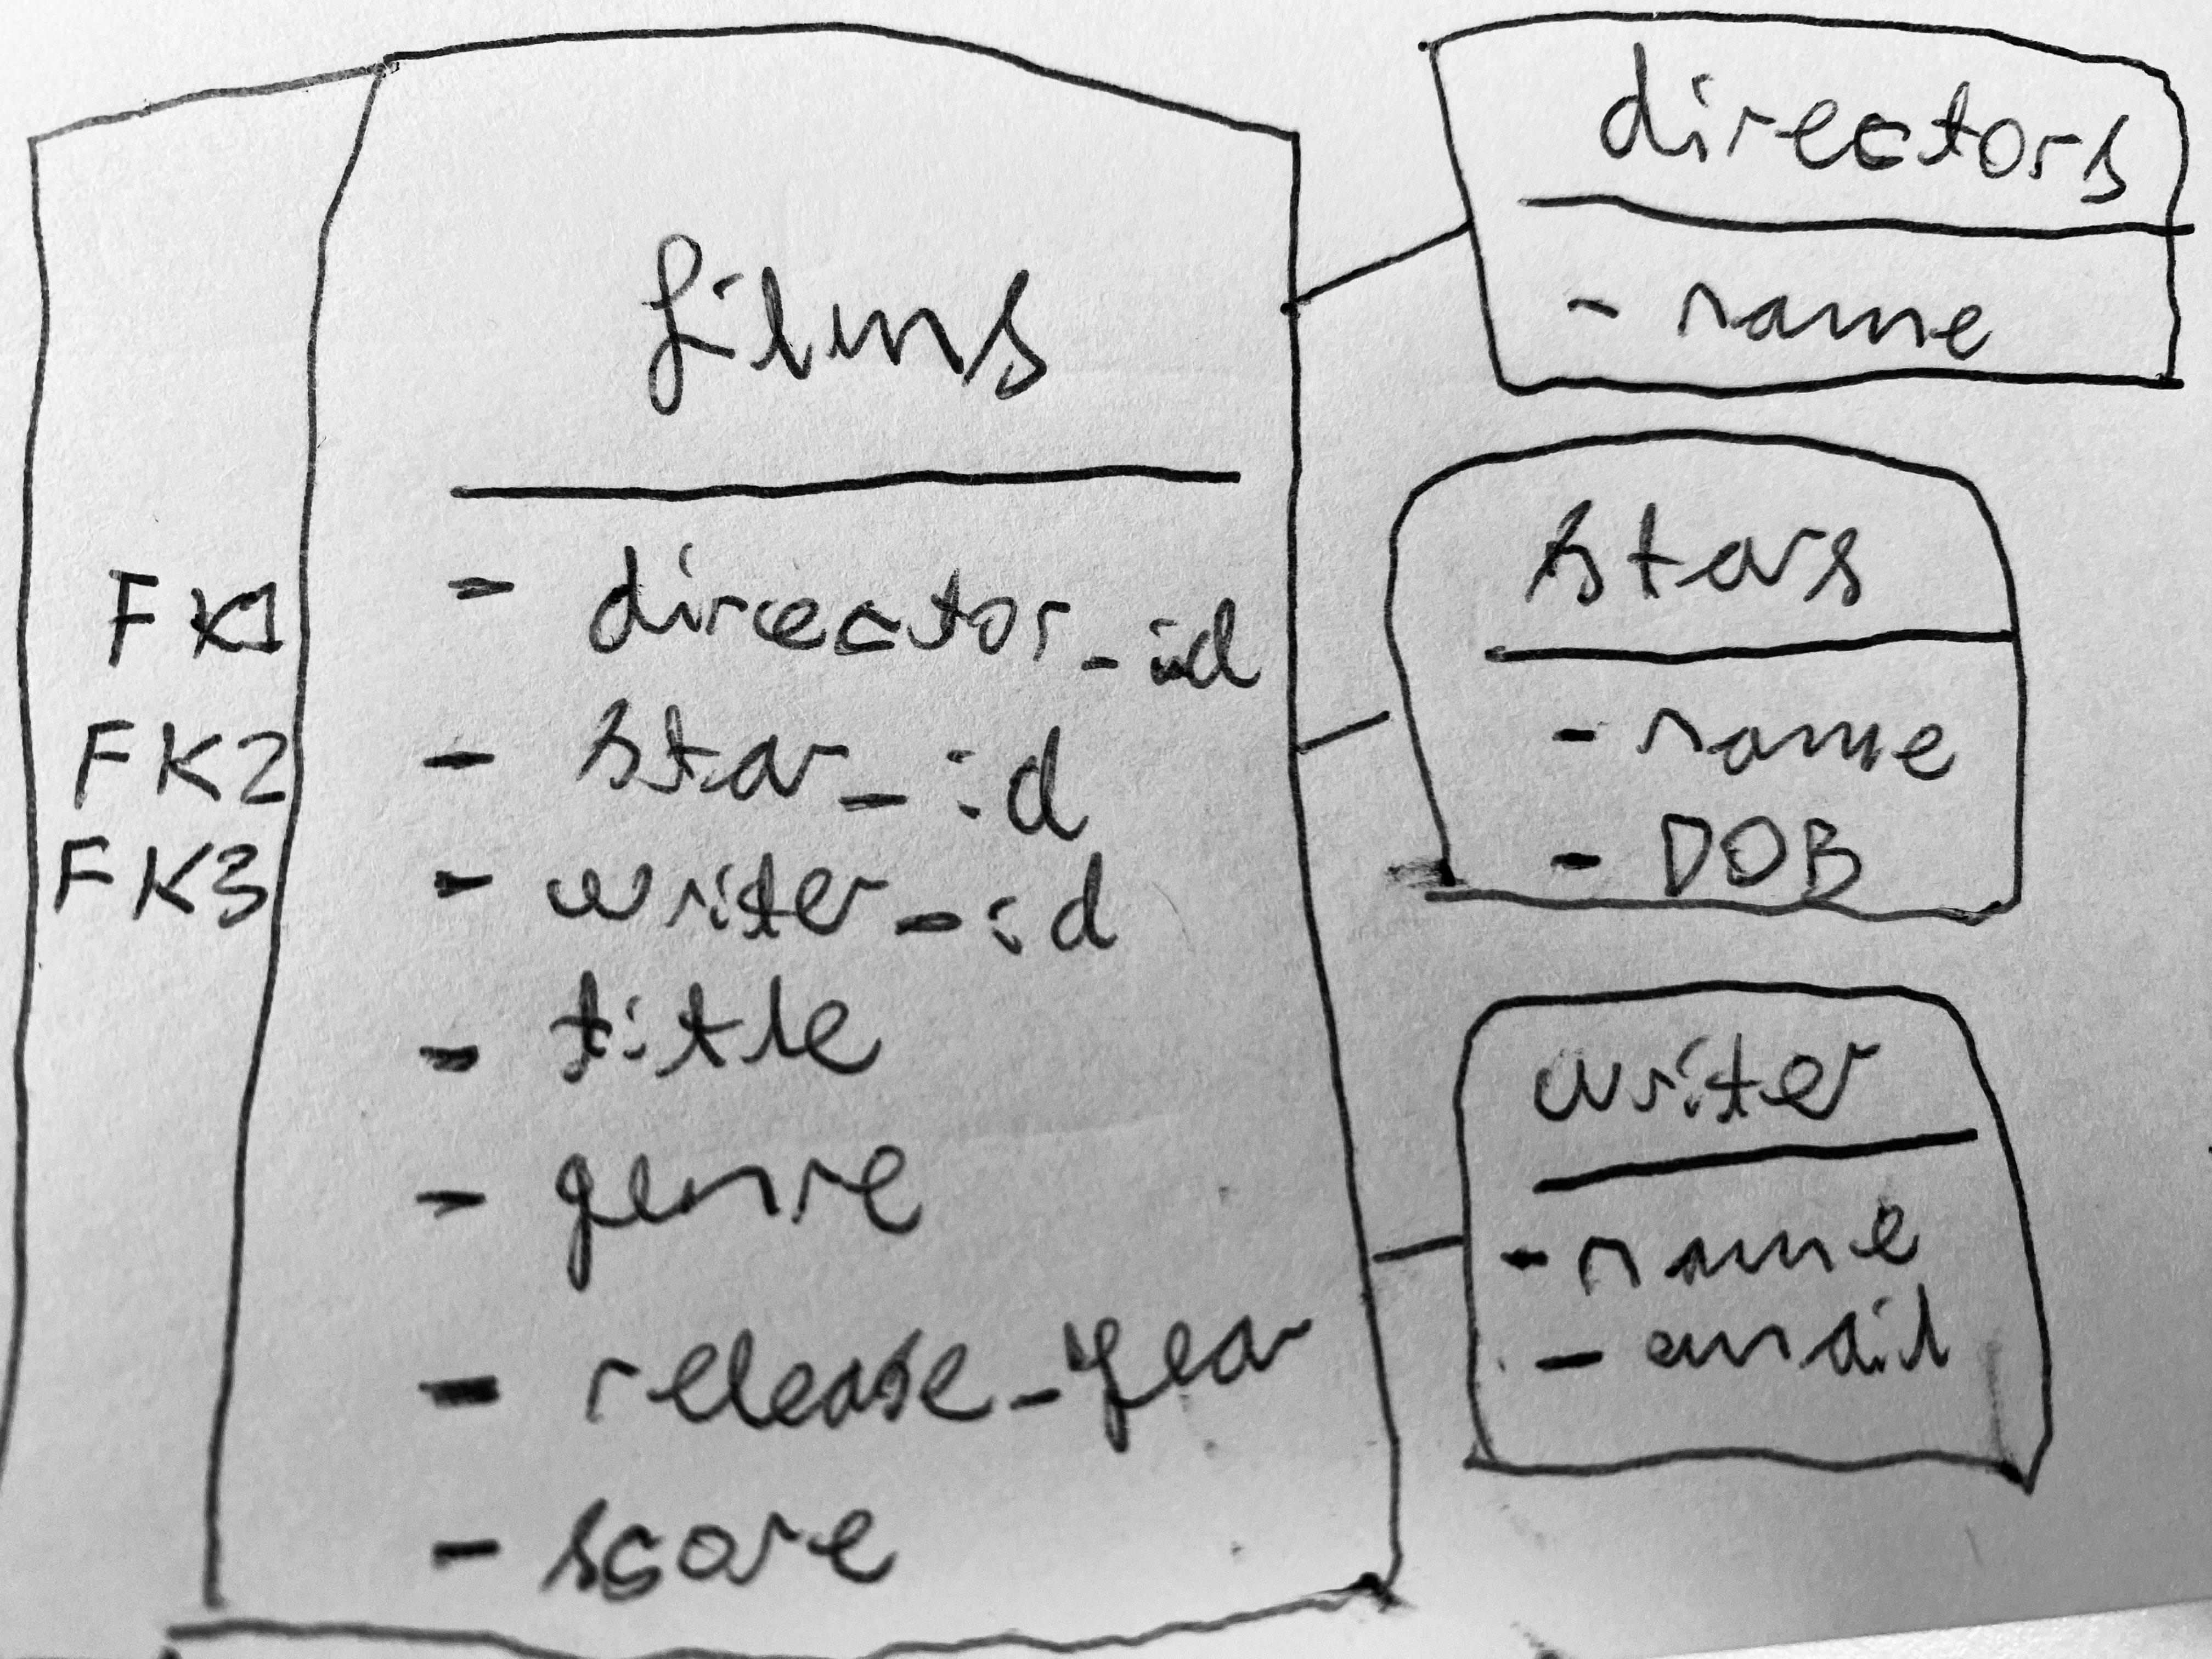 films
FK1 - director_id
FK2 - star_id
FK3 - writer_id
- title
- genre
- release_year
- score
directors
- name
stars
- name
- DOB
writer
- name
- email